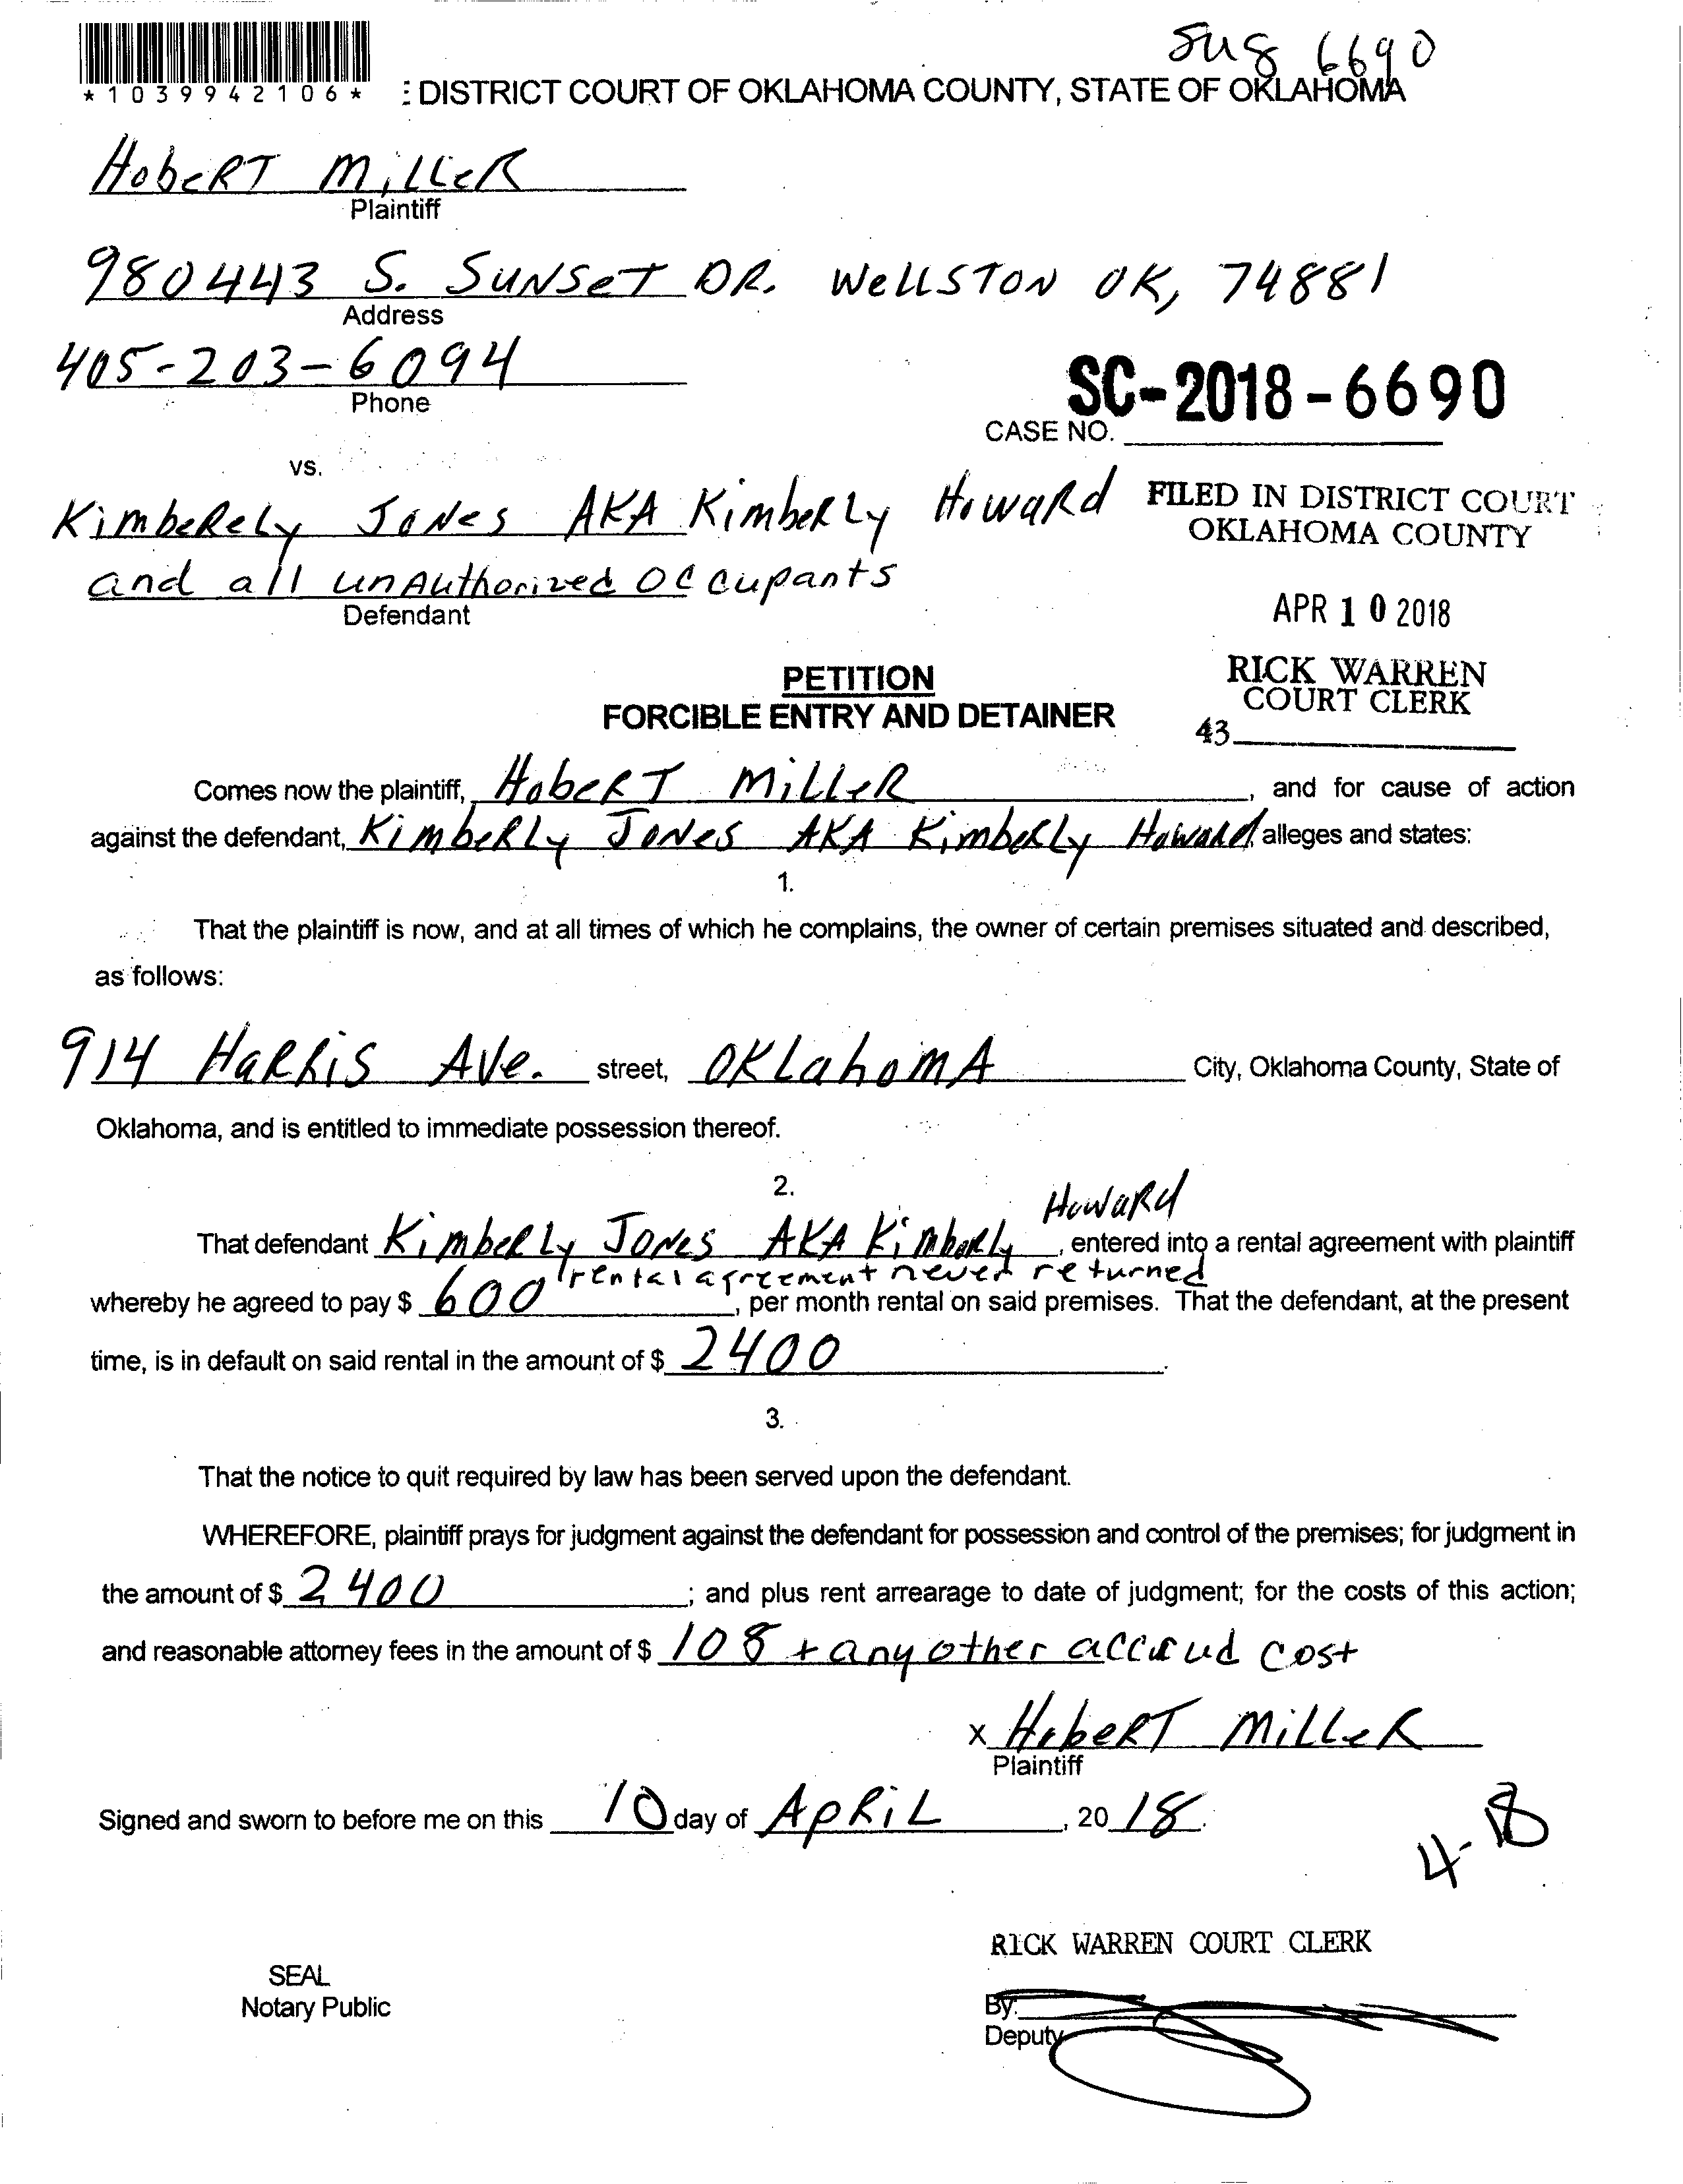 Sug 6690
*1039942106*
: DISTRICT COURT OF OKLAHOMA COUNTY, STATE OF OKLAHOMA
HobeRT MilleR
Plaintiff
980443 S. SUNSeT DR. WellSTON OK, 74881
Address
405-203-6094
Phone
SC-2018-6690
CASE NO.
vs.
KimbeRely JoNes AKA KimbeRLy HowaRd
and all unAuthorized Occupants
Defendant
FILED IN DISTRICT COURT
OKLAHOMA COUNTY
APR 10 2018
RICK WARREN
COURT CLERK
43
PETITION
FORCIBLE ENTRY AND DETAINER
Comes now the plaintiff, HobeRT MilleR, and for cause of action
against the defendant, KimbeRLy JoNes AKA KimbeRLy HowaRd alleges and states:
1.
That the plaintiff is now, and at all times of which he complains, the owner of certain premises situated and described,
as follows:
914 HaRRiS AVe. street, OKLahomA City, Oklahoma County, State of
Oklahoma, and is entitled to immediate possession thereof.
2.
HowaRd
That defendant KimbeRLy JoNes AKA KimbeRly, entered into a rental agreement with plaintiff
rental agreement never returned
whereby he agreed to pay $ 600, per month rental on said premises. That the defendant, at the present
time, is in default on said rental in the amount of $ 2400.
3.
That the notice to quit required by law has been served upon the defendant.
WHEREFORE, plaintiff prays for judgment against the defendant for possession and control of the premises; for judgment in
the amount of $ 2400; and plus rent arrearage to date of judgment; for the costs of this action;
and reasonable attorney fees in the amount of $ 108 + any other accrud cost
x HobeRT MilleR
Plaintiff
Signed and sworn to before me on this 10 day of ApRiL, 20 18.
4-18
RICK WARREN COURT CLERK
SEAL
Notary Public
By:
Deputy